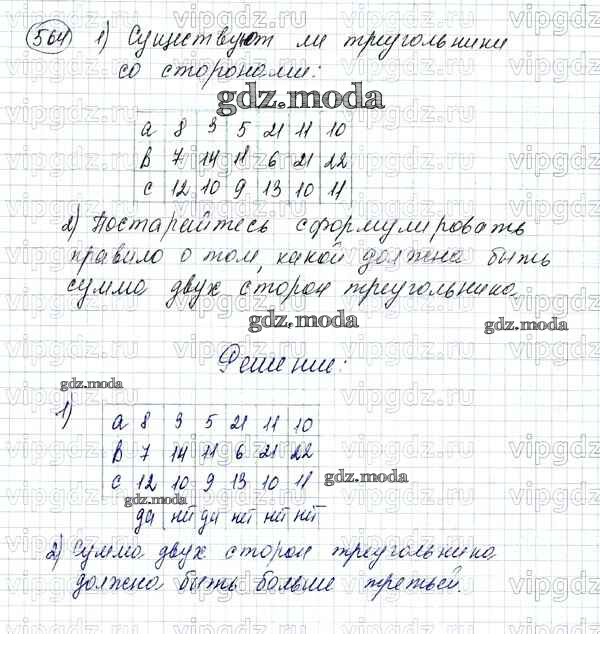 564 1) Существуют ли треугольники
со сторонами:
gdz.moda
a 8 3 5 21 11 10
b 7 14 11 6 21 22
c 12 10 9 13 10 11
2) Постарайтесь сформулировать
правило о том, какой должна быть
сумма двух сторон треугольника.
gdz.moda
gdz.moda
Решение:
gdz.moda
1)
a 8 3 5 21 11 10
b 7 14 11 6 21 22
c 12 10 9 13 10 11
gdz.moda
gdz.moda
да нет да нет нет нет
2) Сумма двух сторон треугольника
должна быть больше третьей.
vipgdz.ru